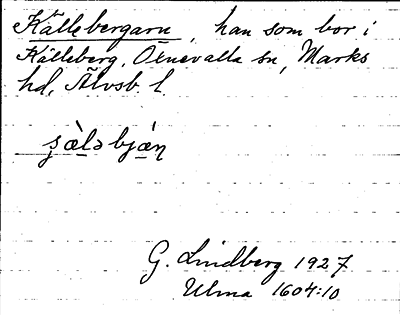 Källebergarn, han som bor i
Källeberg, Öxnevalla sn, Marks
hd, Älvsb. l.
ṣàlə bjáṇ
G. Lindberg 1927
Ulma 1604:10